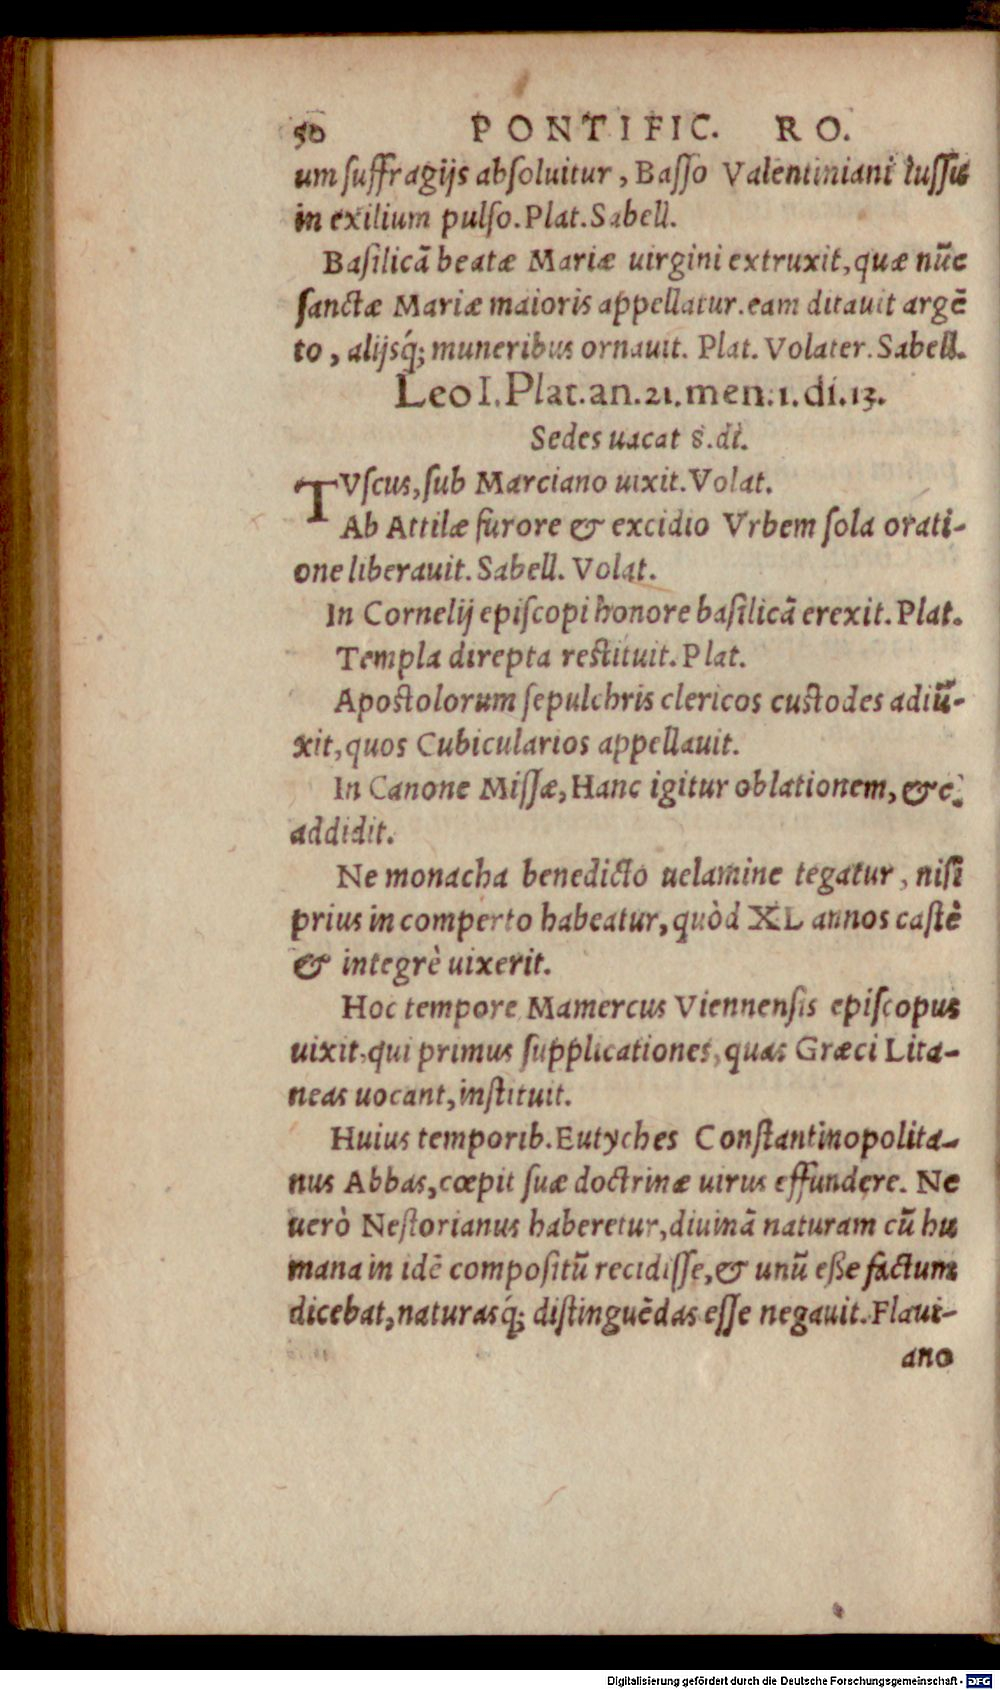 50 PONTIFIC. RO.
um suffragijs absoluitur, Basso Valentiniani iussu
in exilium pulso. Plat. Sabell.
Basilicā beatæ Mariæ uirgini extruxit, quæ nūc
sanctæ Mariæ maioris appellatur. eam ditauit argē
to, alijsq́; muneribus ornauit. Plat. Volater. Sabell.
Leo I. Plat. an. 21. men. 1. di. 13.
Sedes uacat 8. di.
TVscus, sub Marciano uixit. Volat.
Ab Attilæ furore & excidio Vrbem sola orati-
one liberauit. Sabell. Volat.
In Cornelij episcopi honore basilicā erexit. Plat.
Templa direpta restituit. Plat.
Apostolorum sepulchris clericos custodes adiū-
xit, quos Cubicularios appellauit.
In Canone Missæ, Hanc igitur oblationem, &c.
addidit.
Ne monacha benedicto uelamine tegatur, nisi
prius in comperto habeatur, quòd XL annos castè
& integrè uixerit.
Hoc tempore Mamercus Viennensis episcopus
uixit, qui primus supplicationes, quas Græci Lita-
neas uocant, instituit.
Huius temporib. Eutyches Constantinopolita-
nus Abbas, cœpit suæ doctrinæ uirus effundere. Ne
uerò Nestorianus haberetur, diuinā naturam cū hu
mana in idē compositū recidisse, & unū eße factum
dicebat, naturasq́; distinguēdas esse negauit. Flaui-
ano
Digitalisierung gefördert durch die Deutsche Forschungsgemeinschaft - DFG